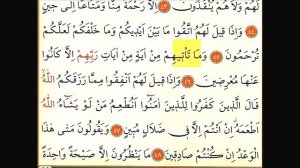 لَهُمْ وَلَا هُمْ يُنْقَذُونَ ٤٣ إِلَّا رَحْمَةً مِنَّا وَمَتَاعًا إِلَىٰ حِينٍ
٤٤ وَإِذَا قِيلَ لَهُمُ اتَّقُوا مَا بَيْنَ أَيْدِيكُمْ وَمَا خَلْفَكُمْ لَعَلَّكُمْ
تُرْحَمُونَ ٤٥ وَمَا تَأْتِيهِمْ مِنْ آيَةٍ مِنْ آيَاتِ رَبِّهِمْ إِلَّا كَانُوا
عَنْهَا مُعْرِضِينَ ٤٦ وَإِذَا قِيلَ لَهُمْ أَنْفِقُوا مِمَّا رَزَقَكُمُ اللَّهُ
قَالَ الَّذِينَ كَفَرُوا لِلَّذِينَ آمَنُوا أَنُطْعِمُ مَنْ لَوْ يَشَاءُ اللَّهُ
أَطْعَمَهُ إِنْ أَنْتُمْ إِلَّا فِي ضَلَالٍ مُبِينٍ ٤٧ وَيَقُولُونَ مَتَىٰ هَٰذَا
الْوَعْدُ إِنْ كُنْتُمْ صَادِقِينَ ٤٨ مَا يَنْظُرُونَ إِلَّا صَيْحَةً وَاحِدَةً